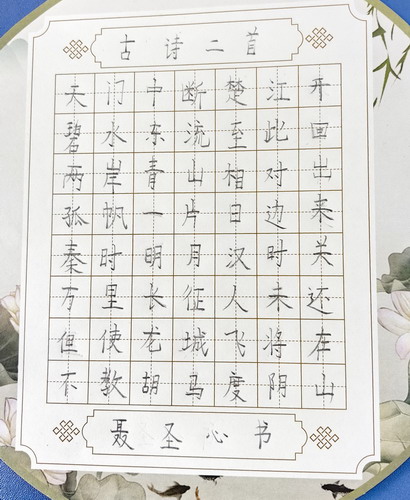 古诗二首
天门中断楚江开
碧水东流至此回
两岸青山相对出
孤帆一片日边来
秦时明月汉时关
万里长征人未还
但使龙城飞将在
不教胡马度阴山
聂圣心书